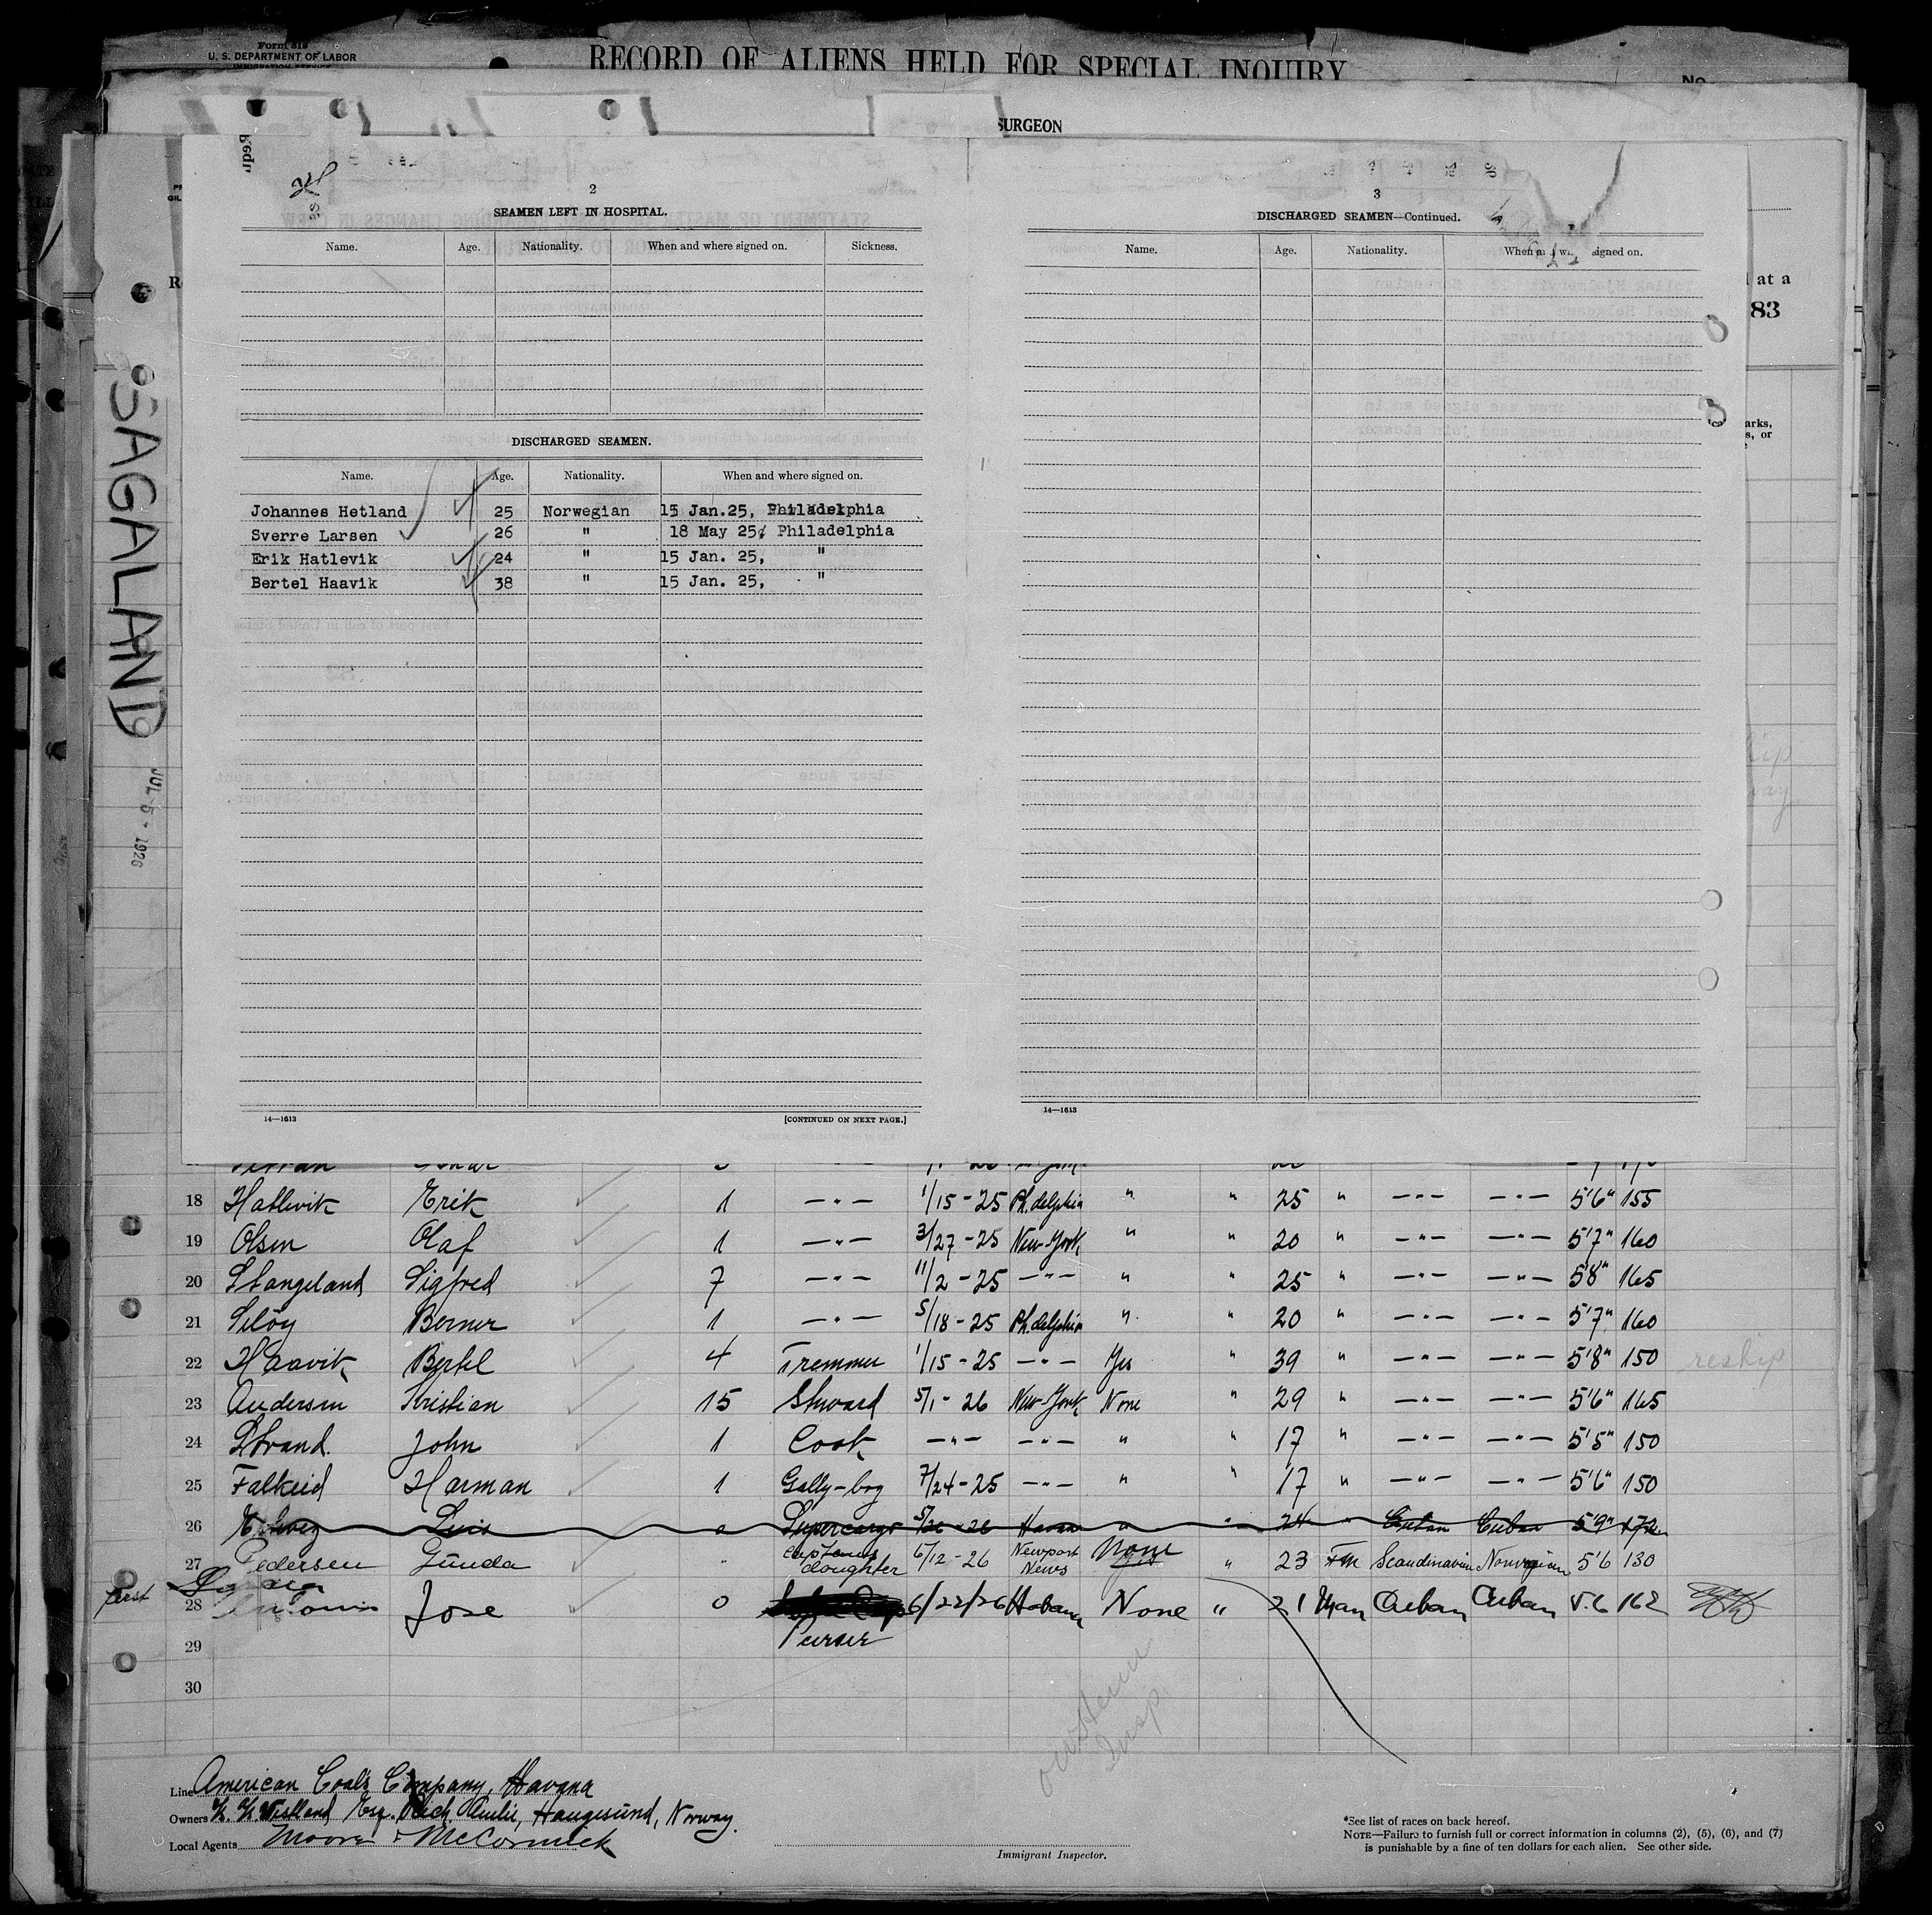 Form 818
U. S. DEPARTMENT OF LABOR
IMMIGRATION SERVICE
RECORD OF ALIENS HELD FOR SPECIAL INQUIRY
No.
SURGEON
SAGALAND
JUL 5 - 1926
at a
83
arks,
s, or
2
SEAMEN LEFT IN HOSPITAL.
Name. Age. Nationality. When and where signed on. Sickness.
DISCHARGED SEAMEN.
Name. Age. Nationality. When and where signed on.
Johannes Hetland 25 Norwegian 15 Jan.25, Philadelphia
Sverre Larsen 26 " 18 May 25, Philadelphia
Erik Hatlevik 24 " 15 Jan. 25, "
Bertel Haavik 38 " 15 Jan. 25, "
14—1613
[CONTINUED ON NEXT PAGE.]
3
DISCHARGED SEAMEN—Continued.
Name. Age. Nationality. When signed on.
14—1613
18 Hatlevik Erik 1 —"— 1/15-25 Ph.delphia " " 25 " —"— —"— 5'6" 155
19 Olsen Olaf 1 —"— 3/27-25 New-York " " 20 " —"— —"— 5'7" 160
20 Stangeland Sigfred 7 —"— 11/2-25 —"— " " 25 " —"— —"— 5'8" 165
21 Silöy Berner 1 —"— 5/18-25 Ph.delphia " " 20 " —"— —"— 5'7" 160
22 Haavik Bertel 4 Tremmer 1/15-25 —"— Yes " 39 " —"— —"— 5'8" 150 reship
23 Andersen Kristian 15 Stuward 5/1-26 New-York None " 29 " —"— —"— 5'6" 165
24 Strand. John 1 Cook —"— —"— " " 17 " —"— —"— 5'5" 150
25 Falkeid Harman 1 Gally-boy 7/24-25 —"— " " 17 " —"— —"— 5'6" 150
26 Luis 0 Supercargo 5/26-26 Havana " " 24 " Cuban Cuban 5'9" 172
27 Pedersen Gunda " captains daughter 6/12-26 Newport News None " 23 Fm Scandinavian Norwegian 5'6 130
first
28 Jose 0 Purser 6/22/26 Habana None " 21 Man Cuban Cuban 5.6 162
29
30
Insp.
Line American Coal's Company, Havana
Owners Haugesund, Norway.
Local Agents Moore & McCormick
Immigrant Inspector.
*See list of races on back hereof.
NOTE—Failure to furnish full or correct information in columns (2), (5), (6), and (7)
is punishable by a fine of ten dollars for each alien. See other side.